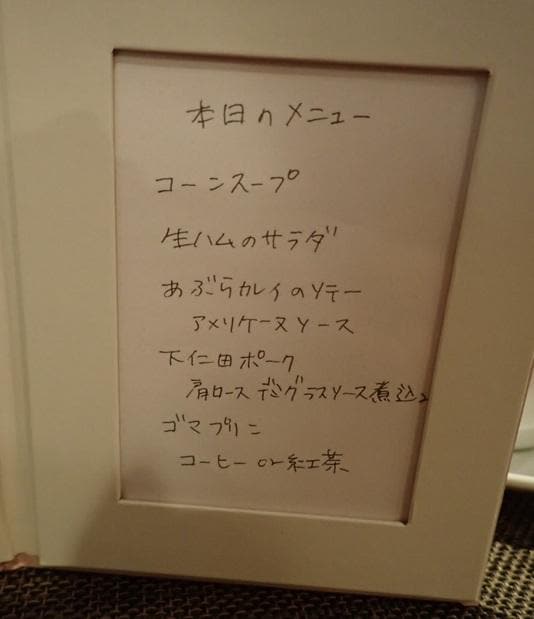 本日のメニュー
コーンスープ
生ハムのサラダ
あぶらカレイのソテー
アメリケーヌソース
下仁田ポーク
肩ロース デミグラスソース煮込み
ゴマプリン
コーヒー or 紅茶